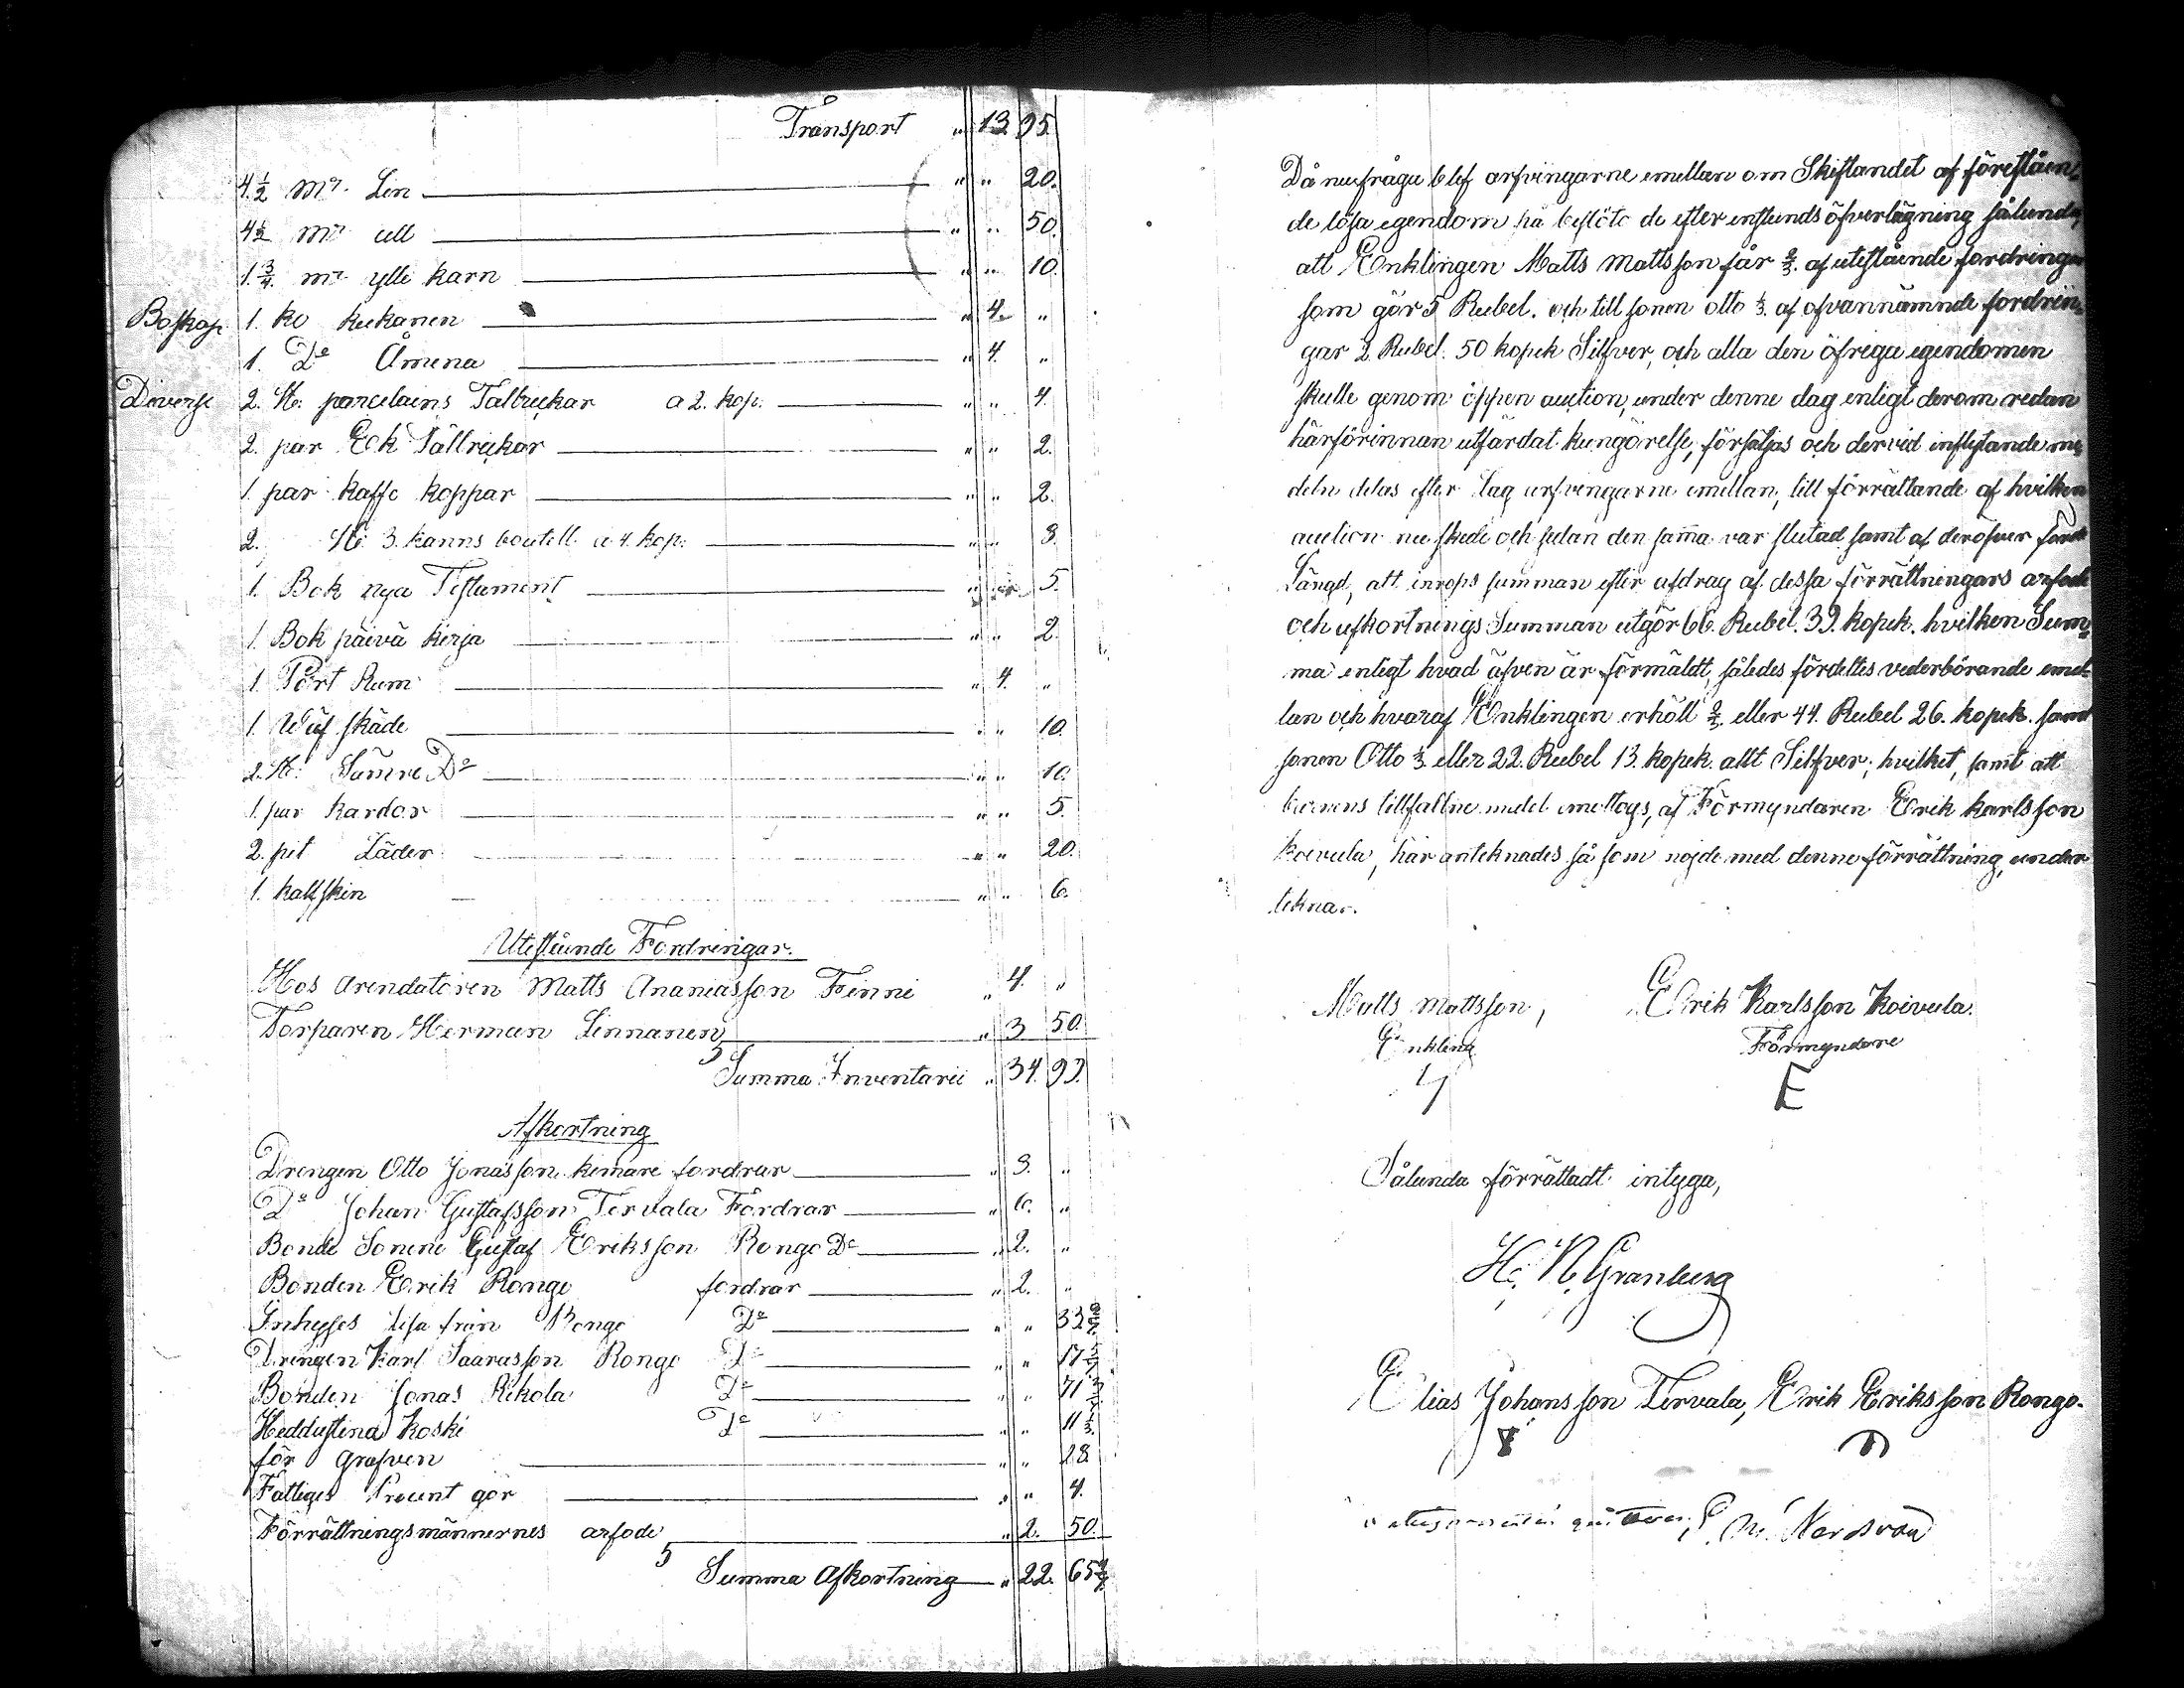 Transport " 13 95
4 1/2 Mr. Lin " " 20.
4 1/2 Mr ull " " 50.
1 3/4 mr ylle karn " " 10.
Boskap 1. ko kukanen " 4. "
1. Do Åmena " 4. "
Diverse 2. St: parcelains Tallrickar a 2. kop. " " 4.
2. par Tallrickar " " 2.
1. par kaffe koppar " " 2.
2. St: 3. kanns boutell. a 4. kop. " " 8.
1. Bok nya Testament " " 5.
1. Bok päivä kirja " " 2.
1. Pört Rum " 4. "
1. Wäf skäde " " 10.
2. St: Sämre Do " " 10.
1. par kardor " " 5.
2. pit Läder " " 20.
1. kalfskin " " 6.
Utestående Fordringar.
Hos arendatoren Matts Ananiasson Finni " 4. "
Torparen Herman Linnanen " 3 50.
Summa Inventarii " 34. 93.
Afkortning
Drengen Otto Jonasson kimare fordrar " 3. "
Do Johan Gustafsson Tervala Fordrar " 6. "
Bonde Sonene Gustaf Eriksson Rongo Do " 2. "
Bonden Erik Rongo fordrar " 2. "
Inhyses Lisa från Rongo Do " " 33 2/7
Drengen Karl Saarasson Rongo Do " " 17 5/7
Bonden Jonas Rekola Do " " 71 3/7
Heddustina Koski Do " " 11
för grafven " " 28
Fattiges Procent gör " " 4.
Förrättningsmännernes arfode " 2. 50.
Summa Afkortning " 22. 65
Då nu fråga blef arfvingarne emellan om Skiftandet af föreståen-
de lösa egendom så beslöto de efter enstunds öfverlägning sålunda,
att Enklingen Matts Mattsson får 2/3. af utestående fordringar
som gör 5 Rubel. och till sonen otto 1/3. af ofvannämnde fordrin-
gar 2. Rubel. 50 kopek Silfver, och alla den öfriga egendomen
skulle genom öppen auction, under denne dag enligt derom redan
härförinnan utfärdat kungörelse, försäljas och dervid inflytande me-
deln delas efter lag arfvingarne emellan, till förrättande af hvilken
auction nu skede och sedan den samma var slutad samt af deröfver förde
Längd, att inrops summan efter afdrag af dessa förrättningars arfode
och afkortnings Summan utgör 66. Rubel. 39. kopek. hvilken Sum-
ma enligt hvad äfven är förmäldt, således fördeltes vederbörande emel-
lan och hvaraf Enklingen erhöll 2/3. eller 44. Rubel 26. kopek. samt
sonen Otto 1/3. eller 22. Rubel 13. kopek. allt Silfver; hvilket, samt att
barnens tillfallne medel emottogs, af Förmyndaren Erik Karlsson
Koivula, här anteknades så som nöjde med denne förrättning, under
teknar.
Matts Mattsson, Erik Karlsson Koivula.
Enkling Förmyndare
E
Sålunda förrättadt intyga,
H. N. Granberg
Elias Johansson Tervala, Erik Eriksson Rongo.